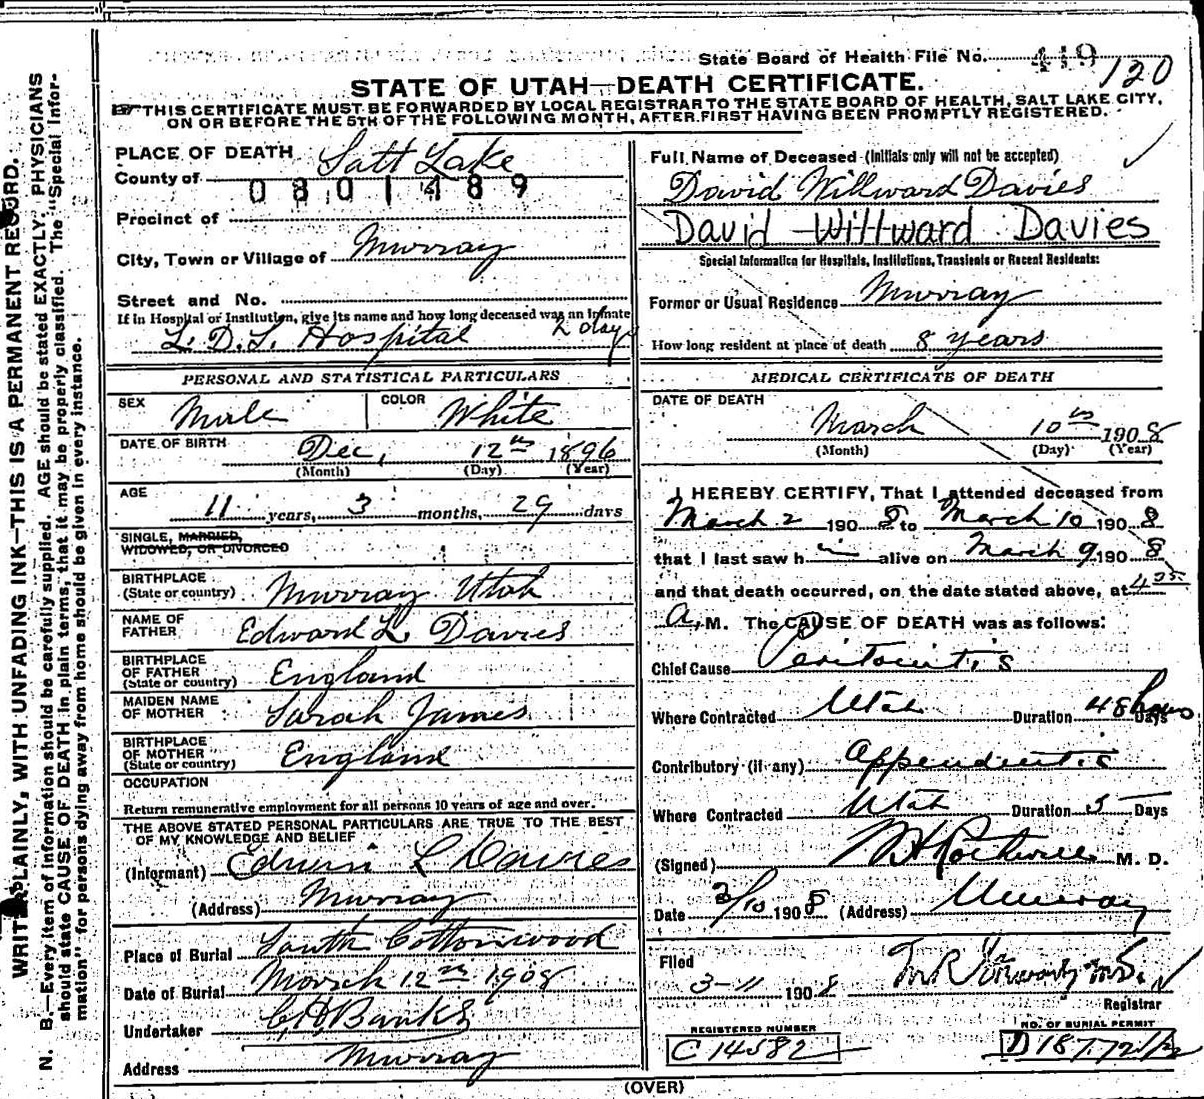 State Board of Health File No. 449
120
STATE OF UTAH—DEATH CERTIFICATE.
THIS CERTIFICATE MUST BE FORWARDED BY LOCAL REGISTRAR TO THE STATE BOARD OF HEALTH, SALT LAKE CITY,
ON OR BEFORE THE 5TH OF THE FOLLOWING MONTH, AFTER FIRST HAVING BEEN PROMPTLY REGISTERED.
WRITE PLAINLY, WITH UNFADING INK—THIS IS A PERMANENT RECORD.
N. B.—Every item of information should be carefully supplied. AGE should be stated EXACTLY. PHYSICIANS
should state CAUSE OF DEATH in plain terms, that it may be properly classified. The "Special Infor-
mation" for persons dying away from home should be given in every instance.
PLACE OF DEATH
County of Salt Lake
0801489
Precinct of
City, Town or Village of Murray
Street and No.
If in Hospital or Institution, give its name and how long deceased was an inmate
L. D. S. Hospital 2 days
Full Name of Deceased (Initials only will not be accepted)
David Willward Davies
David Willward Davies
Special Information for Hospitals, Institutions, Transients or Recent Residents:
Former or Usual Residence Murray
How long resident at place of death 8 years
PERSONAL AND STATISTICAL PARTICULARS
SEX Male COLOR White
DATE OF BIRTH Dec, 12th 1896
(Month) (Day) (Year)
AGE
11 years, 3 months, 29 days
SINGLE, MARRIED,
WIDOWED, OR DIVORCED
BIRTHPLACE
(State or country) Murray Utah
NAME OF
FATHER Edward L. Davies
BIRTHPLACE
OF FATHER
(State or country) England
MAIDEN NAME
OF MOTHER Sarah James
BIRTHPLACE
OF MOTHER
(State or country) England
OCCUPATION
Return remunerative employment for all persons 10 years of age and over.
THE ABOVE STATED PERSONAL PARTICULARS ARE TRUE TO THE BEST
OF MY KNOWLEDGE AND BELIEF
(Informant) Edwin L Davies
(Address) Murray
Place of Burial South Cottonwood
Date of Burial March 12th 1908
Undertaker Banks
Address Murray
MEDICAL CERTIFICATE OF DEATH
DATE OF DEATH
March 10th 1908
(Month) (Day) (Year)
I HEREBY CERTIFY, That I attended deceased from
March 2 1908 to March 10 1908
that I last saw him alive on March 9 1908
and that death occurred, on the date stated above, at 4 25
A. M. The CAUSE OF DEATH was as follows:
Chief Cause Peritonitis
Where Contracted Utah Duration 48 hours Days
Contributory (if any) Appendicitis
Where Contracted Utah Duration 5 Days
(Signed) Rothwell M. D.
Date 3/10 1908 (Address) Murray
Filed
3-11 1908
Registrar
REGISTERED NUMBER
C 14582
NO. OF BURIAL PERMIT
(OVER)